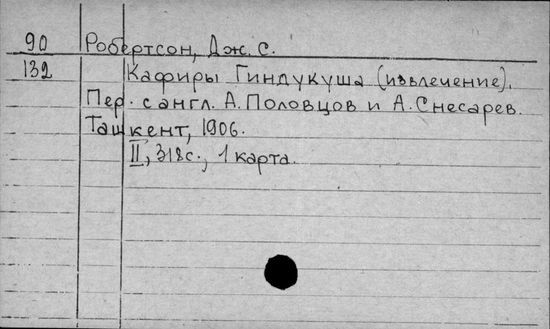 90 Робертсон, Дж. С.
132 Кафиры Гиндукуша (извлечение).
Пер. с англ. А. Половцов и А. Снесарев.
Ташкент, 1906.
II, 318с., 1 карта.